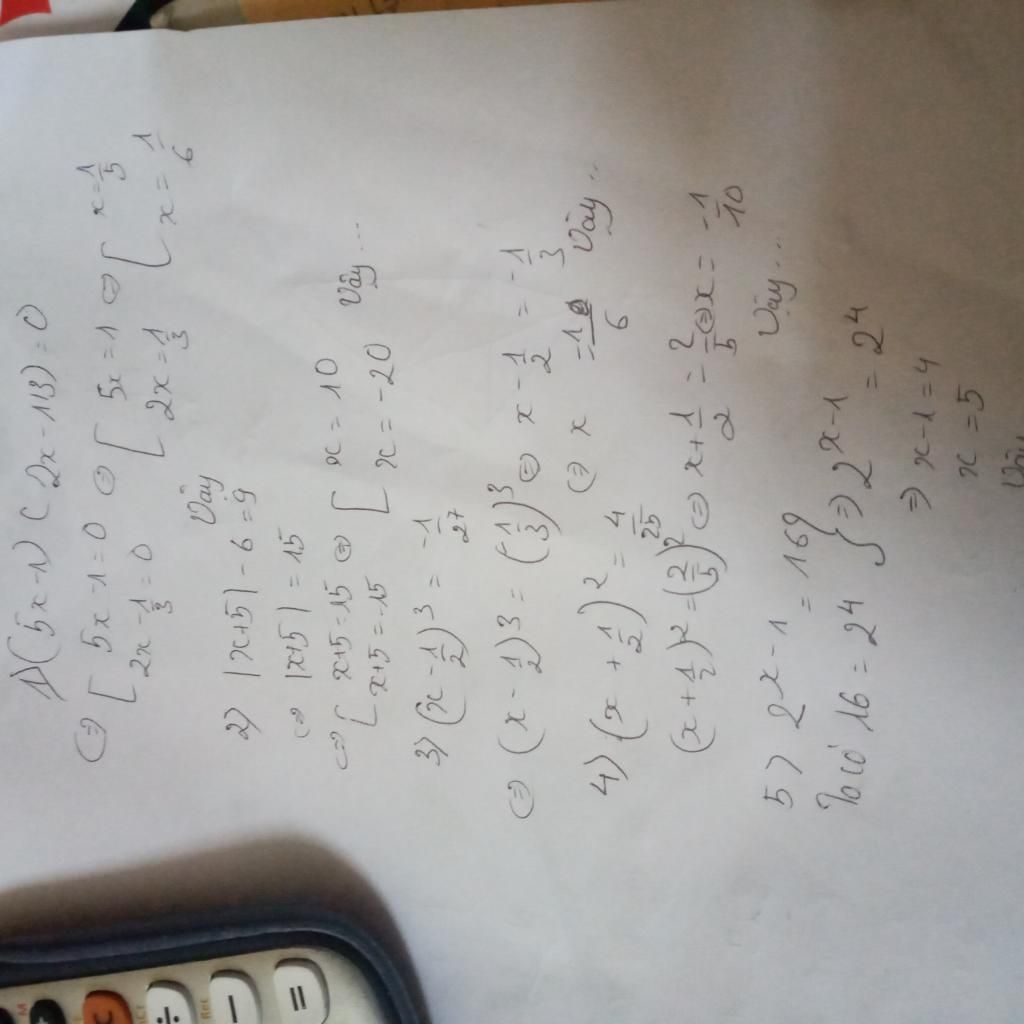 1) (5x-1)(2x-1/3)=0
⇔ [ 5x-1=0 ⇔ [ 5x=1 ⇔ [ x=1/5
2x-1/3=0 2x=1/3 x=1/6
Vậy
2) |x+5|-6=9
⇔ |x+5|=15
⇔ [ x+5=15 ⇔ [ x=10
x+5=-15 x=-20 Vậy...
3) (x-1/2)^3=-1/27
⇔ (x-1/2)^3=(-1/3)^3 ⇔ x-1/2=-1/3
⇔ x=1/6 Vậy..
4) (x+1/2)^2=4/25
(x+1/2)^2=(2/5)^2 ⇔ x+1/2=2/5 ⇔ x=-1/10
Vậy...
5) 2^x-1=16
Ta có 16=2^4 } ⇒ 2^x-1=2^4
⇒ x-1=4
x=5
Vậy
÷
-
=